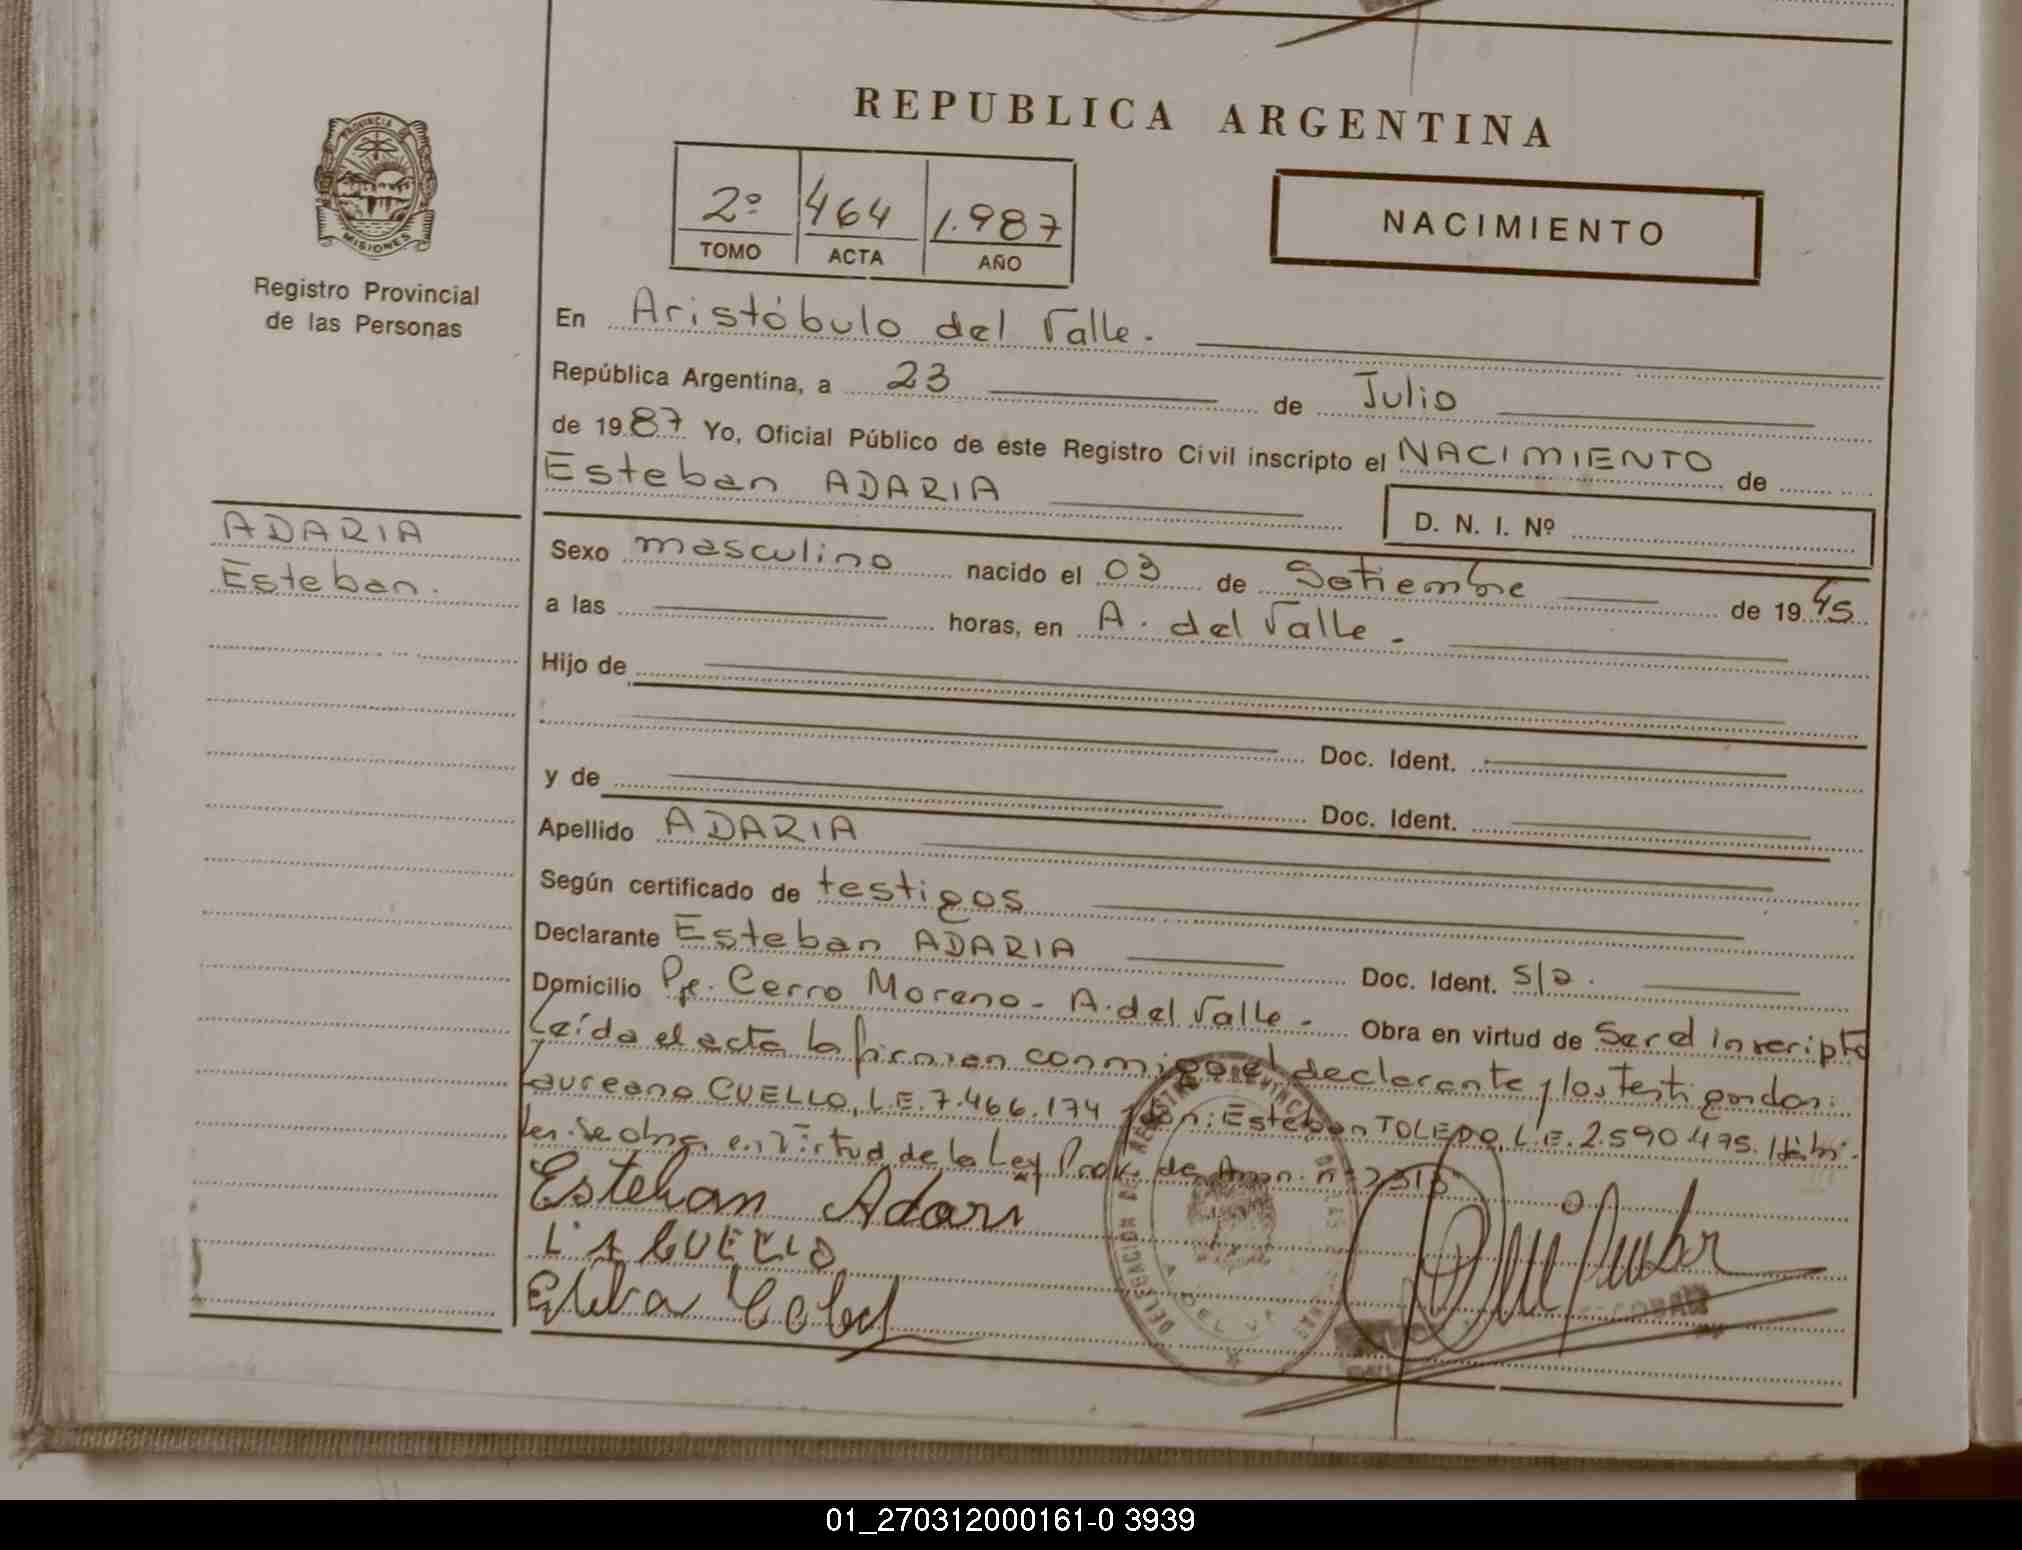 REPUBLICA ARGENTINA
PROVINCIA DE
MISIONES
Registro Provincial
de las Personas
2º 464 1.987
TOMO ACTA AÑO
NACIMIENTO
En Aristóbulo del Valle.
República Argentina, a 23 de Julio
de 1987 Yo, Oficial Público de este Registro Civil inscripto el NACIMIENTO de
Esteban ADARIA
D. N. I. Nº
ADARIA
Esteban.
Sexo masculino nacido el 03 de Setiembre de 1945
a las horas, en A. del Valle.
Hijo de
Doc. Ident.
y de Doc. Ident.
Apellido ADARIA
Según certificado de testigos
Declarante Esteban ADARIA Doc. Ident. S/D.
Domicilio Pje. Cerro Moreno - A. del Valle. Obra en virtud de Ser el Inscripto
Leída el acta la firman conmigo el declarante y los testigos don:
Laureano CUELLO, L.E. 7.466.174 y don: Esteban TOLEDO, L.E. 2.590.475. Hábi-
les. Se obra en virtud de la Ley Prov. de nº 2313
Esteban Adari
L A CUELLO
DELEGACION DE REGISTRO PROVINCIAL DE LAS PERSONAS
A. DEL VALLE
ESCOBAR
01_270312000161-0 3939